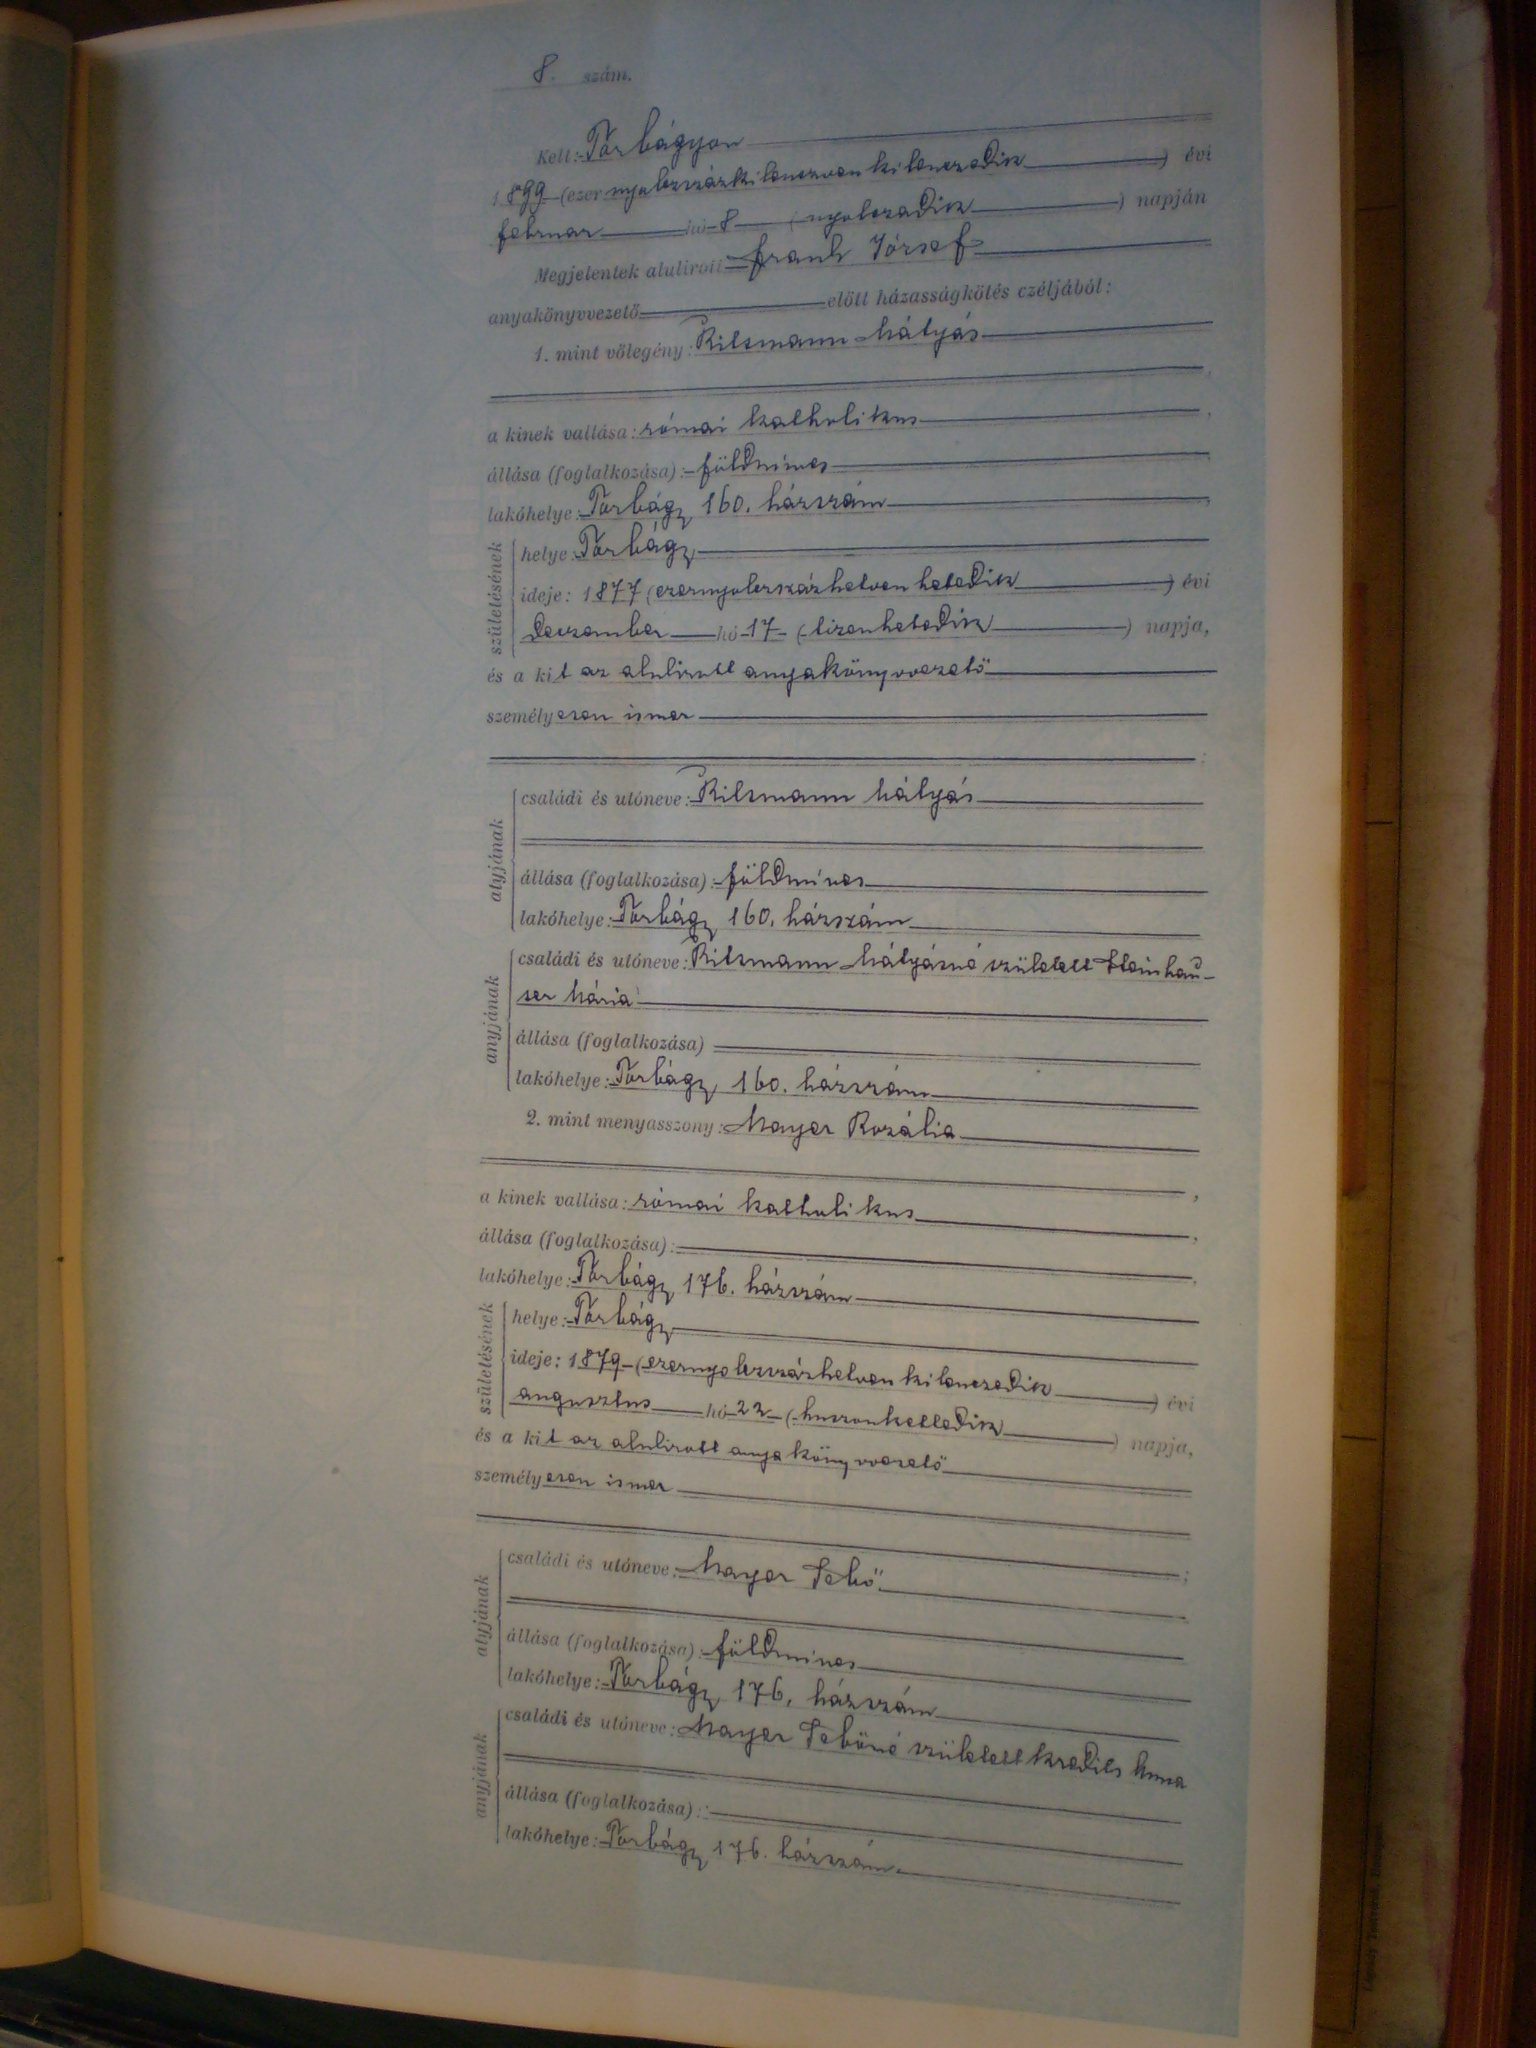 8. szám.
Kelt: Torbágyon
1899 (ezernyolczszázkilenczvenkilenczedik) évi
februar hó 8 (nyolczadik) napján
Megjelentek alulirott Frank József
anyakönyvvezető előtt házasságkötés czéljából:
1. mint vőlegény: Ritzmann Mátyás
a kinek vallása: római katholikus,
állása (foglalkozása): földmives,
lakóhelye: Torbágy 160. házszám,
születésének
helye: Torbágy
ideje: 1877 (ezernyolczszázhetvenhetedik) évi
deczember hó 17 (tizenhetedik) napja,
és a kit az alulirott anyakönyvvezető
személyesen ismer
atyjának
családi és utóneve: Ritzmann Mátyás
állása (foglalkozása): földmives
lakóhelye: Torbágy 160. házszám
anyjának
családi és utóneve: Ritzmann Mátyásné született Steinhau-
ser Mária
állása (foglalkozása)
lakóhelye: Torbágy 160. házszám
2. mint menyasszony: Mayer Rozália
a kinek vallása: római katholikus,
állása (foglalkozása):
lakóhelye: Torbágy 176. házszám
születésének
helye: Torbágy
ideje: 1879 (ezernyolczszázhetvenkilenczedik) évi
augusztus hó 22 (huszonkettedik) napja,
és a kit az alulirott anyakönyvvezető
személyesen ismer
atyjának
családi és utóneve: Mayer Sebő
állása (foglalkozása): földmives
lakóhelye: Torbágy 176. házszám
anyjának
családi és utóneve: Mayer Sebőné született Kredits Anna
állása (foglalkozása):
lakóhelye: Torbágy 176. házszám